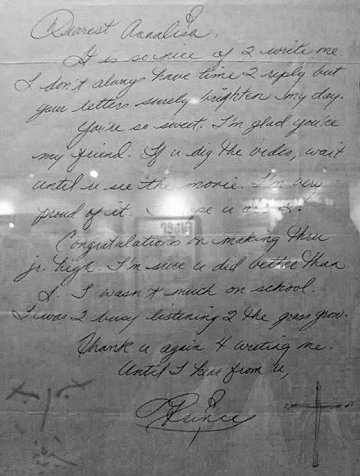 Dearest Annalisa,
It is so nice of 2 write me.
I don't always have time 2 reply but
your letters surely brighten my day.
You're so sweet. I'm glad you're
my friend. If u dig the video, wait
until u see the movie. I'm very
proud of it
Congratulations on making thru
jr. high. I'm sure u did better than
I. I wasn't much on school.
I was 2 busy listening 2 the grass grow.
Thank u again 4 writing me.
Until I hear from u,
Prince